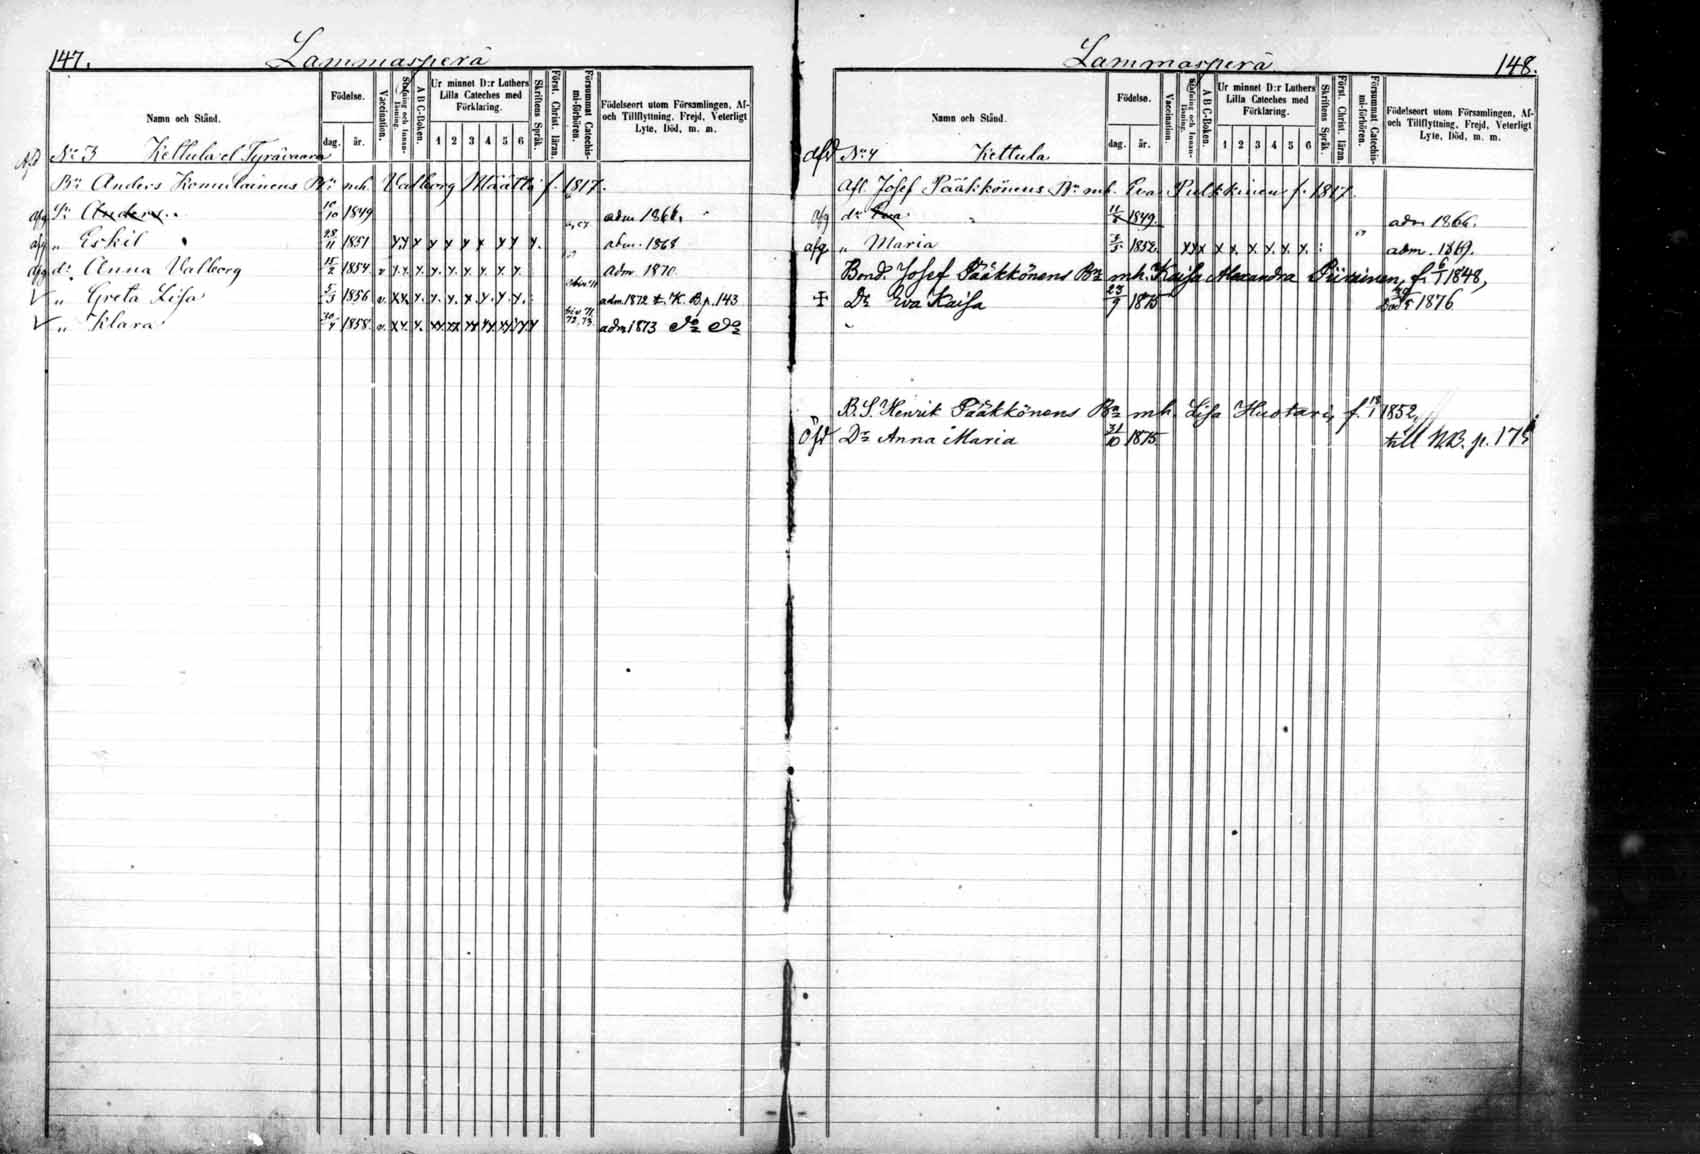 147. Lammasperä
Namn och Stånd.
Födelse.
dag. år.
Vaccination.
Stafning och Innanläsning.
A B C-Boken.
Ur minnet D:r Luthers Lilla Cateches med Förklaring.
1 2 3 4 5 6
Skriftens Språk.
Först. Christ. läran.
Försummat Catechismi-förhören.
Födelseort utom Församlingen, Af- och Tillflyttning, Frejd, Veterligt Lyte, Död, m. m.
Afd No 3 Kettula el. Tyrävaara
Bn Anders Komulainens Bn mh. Valborg Määttä f. 1817.
afg Sn Anders 10/10 1849 adm 1866.
afg " Eskil 28/11 1851 x x x x x x x x x x. adm. 1868
afg dr Anna Valborg 15/2 1854 v x. x. x. x x x x x x adm 1870.
" Greta Lisa 5/3 1856 v. x x. x. x. x. x. x. x. x. adm. 1872 t. K. B. p. 143
" Klara 30/4 1858 v. x x. x. xx xx xx xx xx xx x adm 1873 do do
Lammasperä 148.
Namn och Stånd.
Födelse.
dag. år.
Vaccination.
Stafning och Innanläsning.
A B C-Boken.
Ur minnet D:r Luthers Lilla Cateches med Förklaring.
1 2 3 4 5 6
Skriftens Språk.
Först. Christ. läran.
Försummat Catechismi-förhören.
Födelseort utom Församlingen, Af- och Tillflyttning, Frejd, Veterligt Lyte, Död, m. m.
afd No 4 Kettula
Afl. Josef Pääkkönens Bn mh. Eva Pulkkinen f. 1817
afg dr Eva 1849. adm 1866.
afg. " Maria 1852. x x x x x. x. x. x. x. adm. 1869.
Bond. Josef Pääkkönens Bn mh. Kaisa Alexandra Piirainen, f. 6/1 1848,
Dr Eva Kaisa 23/9 1875 Död 1876
B. S. Henrik Pääkkönens Bn mh. Lisa Huotari, f. 18/1 1852,
Öfd Dr Anna Maria 31/10 1875 till N.B. p. 175